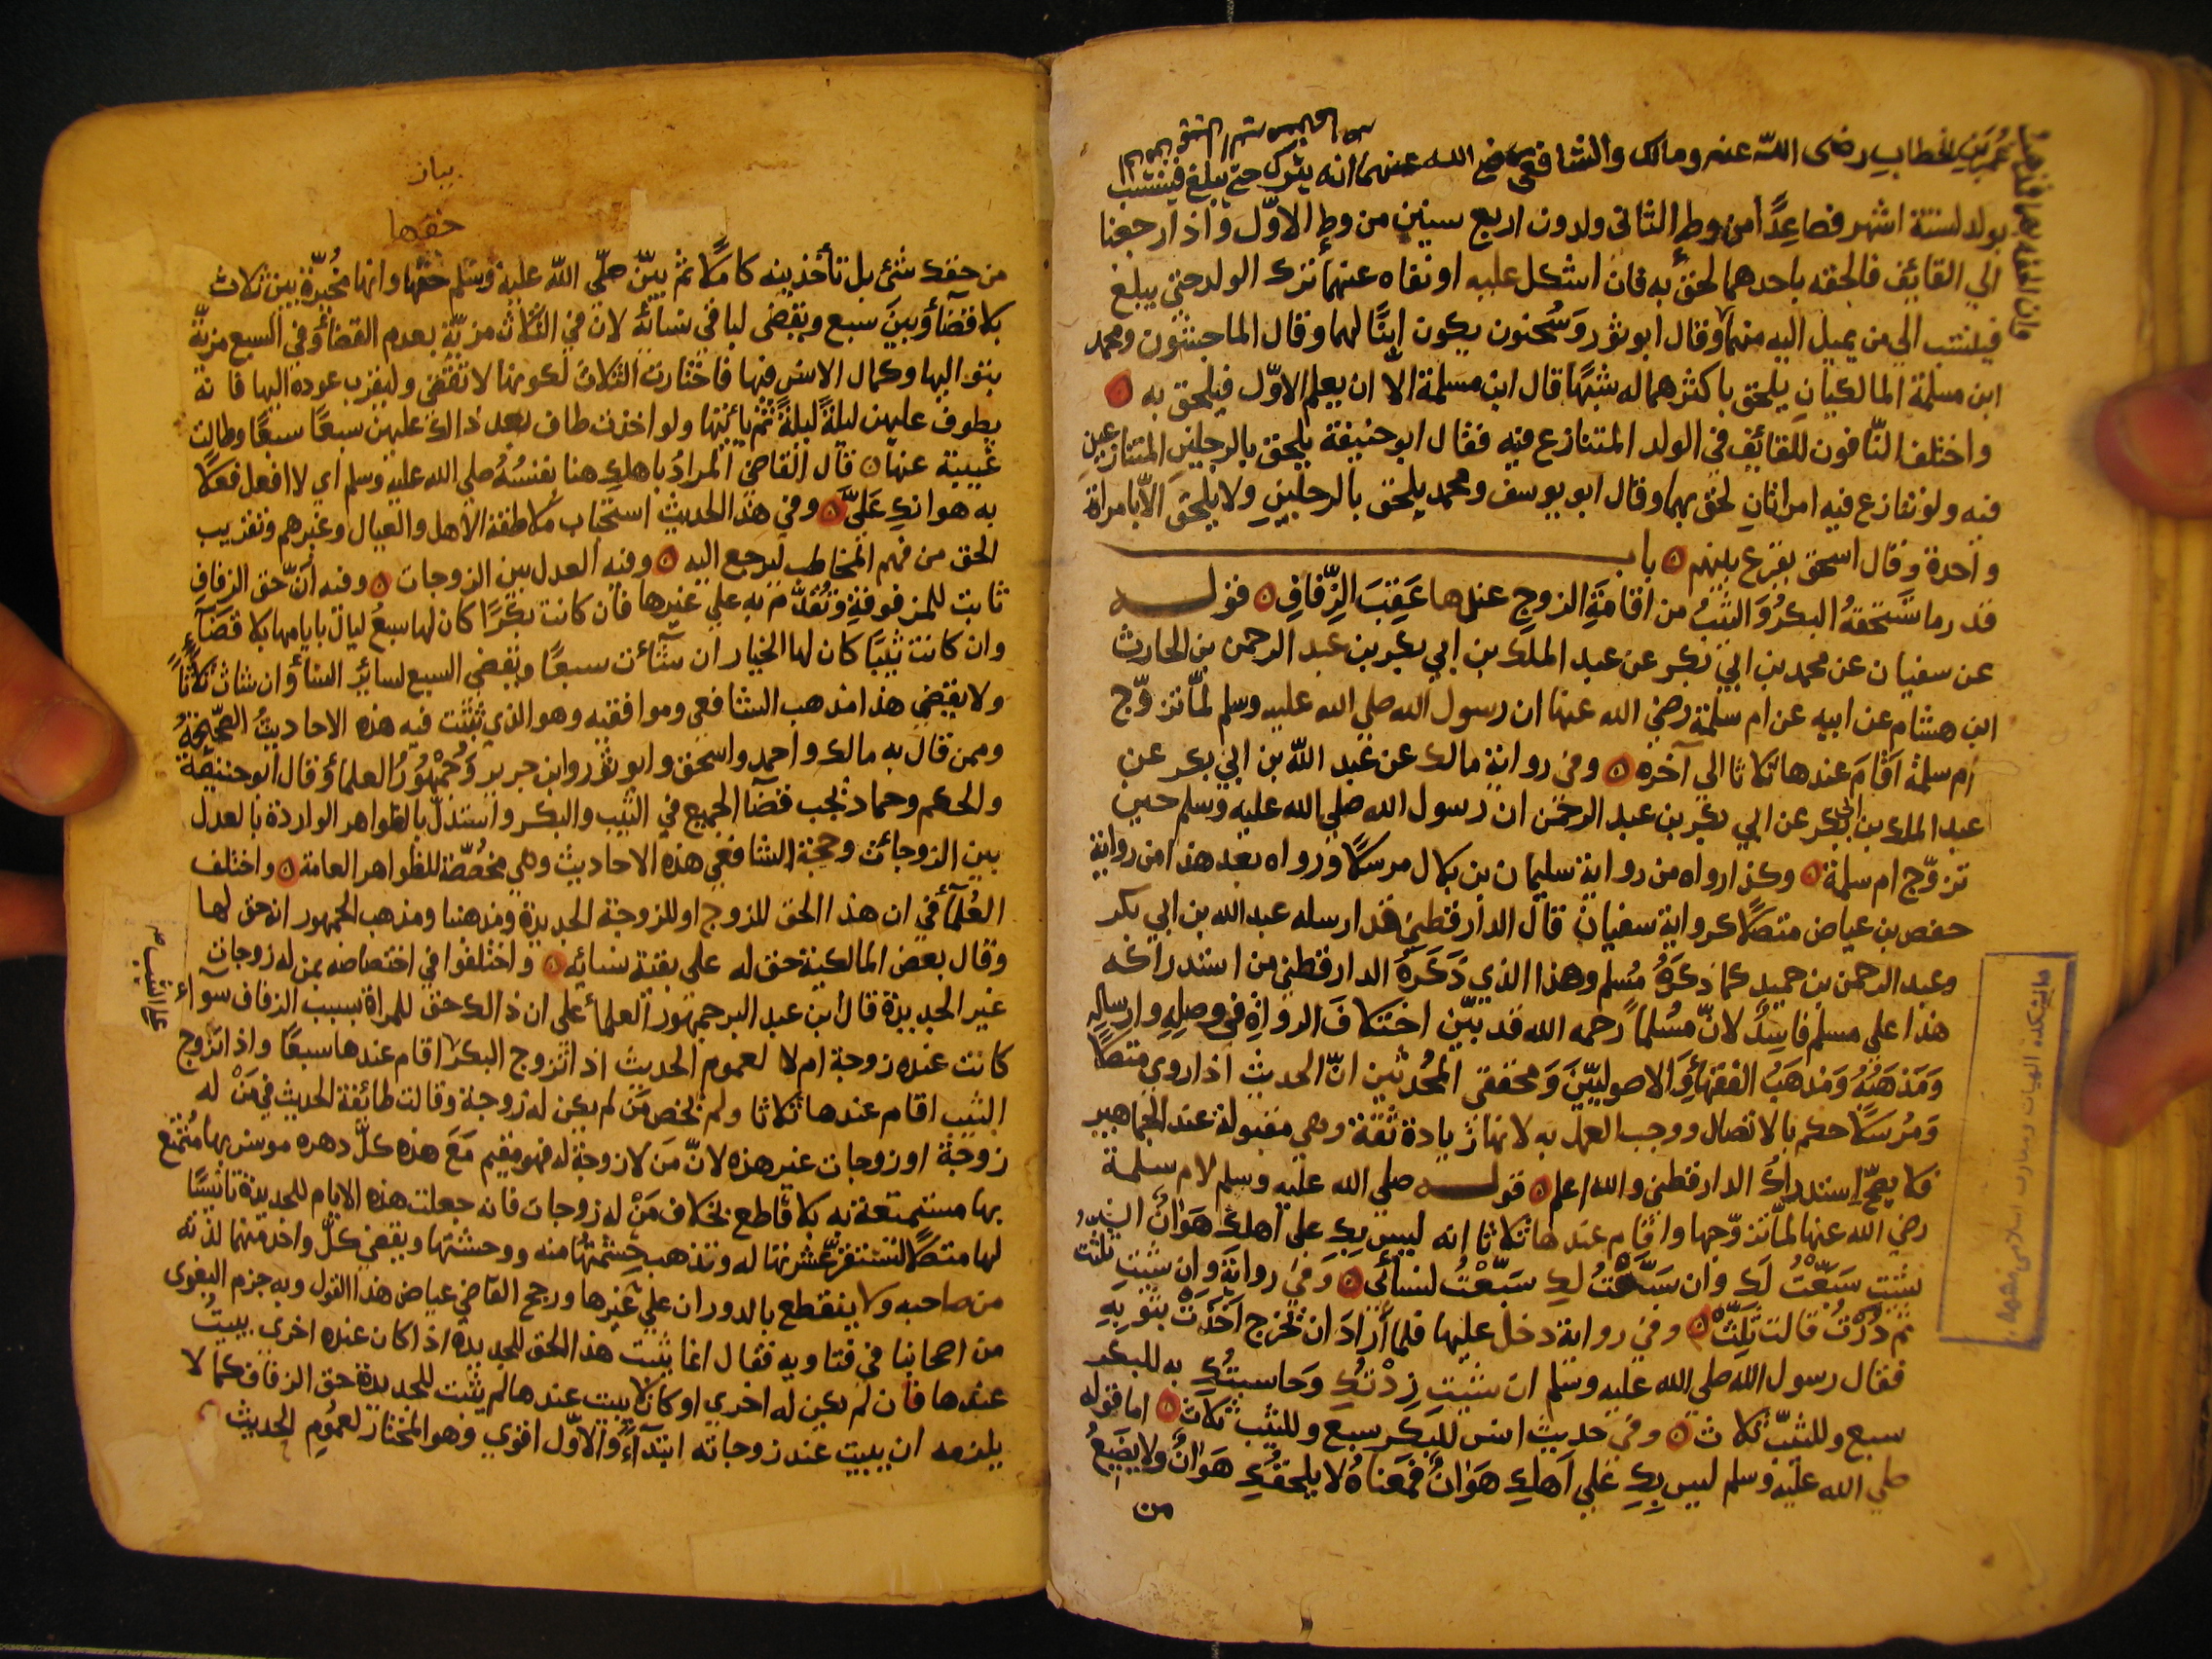 عمر بن الخطاب رضى الله عنه ومالك والشافعى رضي الله عنهما انه يترك حتى يبلغ فينتسب
بولد لستة اشهر فصاعدًا من وطء الثانى ولدون اربع سنين من وطء الاوّل واذا رجعنا
الي القائف فالحقه باحدهما لحق به فان اشكل عليه او نفاه عنهما ترك الولد حتى يبلغ
فينتسب الي من يميل اليه منهما وقال ابو ثور وسُحنون يكون ابنًا لهما وقال الماجشون ومحمد
ابن مسلمة المالكيان يلحق باكثرهما له شبهًا قال ابن مسلمة الاّ ان يعلم الاوّل فيلحق به ٥
واختلف النّافون للقائف في الولد المتنازع فيه فقال ابو حنيفة يلحق بالرجلين المتنازعين
فيه ولو تنازع فيه امراتان لحق بهما وقال ابو يوسف ومحمد يلحق بالرجلين ولا يلحق الاّ بامراة
واحدة وقال اسحق يقرع بينهم ٥ باب
قدر ما تستحقهُ البكرُ وَالثيّبُ من اقامَةِ الزوج عندها عَقِبَ الزِّفافِ ٥ قوله
عن سفيان عن محمد بن ابي بكر عن عبد الملك بن ابي بكر بن عبد الرحمن بن الحارث
ابن هشام عن ابيه عن ام سلمة رضي الله عنها ان رسول الله صلي الله عليه وسلم لمّا تزوّج
ام سلمة اقَامَ عندها ثلاثا الي آخره ٥ وفي رواية مالك عن عبد الله بن ابي بكر عن
عبد الملك بن ابي بكر عن ابي بكر بن عبد الرحمن ان رسول الله صلي الله عليه وسلم حين
تزوّج ام سلمة ٥ وكذا رواه من رواية سليمان بن بلال مرسلًا ورواه بعد هذا من رواية
حفص بن عياض متصلًا كرواية سفيان قال الدارقطني قد ارسله عبد الله بن ابي بكر
وعبد الرحمن بن حميد كما ذكرَهُ مُسلم وهذا الذي ذَكَرَهُ الدارقطني من استدراكه
هذا على مسلم فاسِدٌ لانّ مُسلماً رحمه الله قد بيّن اختلافَ الرواة في وصلِهِ وارسالِهِ
وَمَذهَبُهُ وَمَذهَبُ الفقهاءِ وَالاصوليّينَ وَمحققي المُحدثين انّ الحديث اذا روي متصلًا
وَمُرسَلًا حكم بالاتصال ووجب العمل به لانها زيادة ثقة وهي مقبولة عند الجماهير
فلا يصحّ استدراكُ الدارقطني والله اعلم ٥ قوله صلي الله عليه وسلم لام سلمة
رضي الله عنها لمّا تزوّجها واقام عندها ثلاثا انه ليس بِكِ علي اهلكِ هَوَانٌ ان
شئتِ سَبّعْتُ لَكِ وان سَبّعْتُ لكِ سَبّعْتُ لنسائي ٥ وَفي روايَةٍ وَان شئتِ ثلثت
ثم دُرْتُ قالت ثَلِّثْ ٥ وفي رواية دخل عليها فلما أرَادَ ان يخرج أخَذَتْ بثوبِهِ
فقال رسول الله صلي الله عليه وسلم ان شئتِ زِدْتُكِ وَحاسبتُكِ به للبكر
سبع وللثيّب ثلاث ٥ وفي حديث انس للبكر سبع وللثيّب ثلاث ٥ اما قوله
صلي الله عليه وسلم ليس بِكِ عَلي اَهلكِ هَوَانٌ فمَعناهُ لا يلحقُكِ هَوَانٌ ولا يضيعُ
من
دانشکده الهیات ومعارف اسلامی مشهد
بيان
حقها
من حقكِ شئ بل تأخذينه كاملًا ثم بيّن صلّي الله عليه وسلم حقّها وانها مُخيّرة بين ثلاث
بلا قضآء وبين سبع ويقضى لباقي نسائه لانّ في الثلاث مزيّة بعدم القضاء وفي السبع مزيّة
بتواليها وكمال الانس فيها فاختارت الثلاث لكونها لا تقضى وليقرب عوده اليها فانه
يطوف عليهن ليلةً ليلةً ثم يأتيها ولو اخذت طاف بعد ذالك عليهن سبعًا سبعًا وطالت
غيبته عنها ٥ قال القاضي المرادُ باهلكِ هنا نفسُهُ صلي الله عليه وسلم اي لا افعل فعلًا
به هوانكِ عَلَيَّ ٥ وفي هذا الحديث استحباب ملاطفة الاهل والعيال وغيرهم وتقريب
الحق من فهم المخاطب ليرجع اليه ٥ وفيه العدل بين الزوجات ٥ وفيه أنّ حق الزفافِ
ثابت للمزفوفةِ وتُقدَّم به علي غيرها فان كانت بكرًا كان لها سبعُ ليال بايامها بلا قضآءٍ
وان كانت ثيبًا كان لها الخيار ان شآئت سبعًا ويقضي السبع لسائر النساء وان شاءت ثلاثًا
ولا يقضي هذا مذهب الشافعي وموافقيه وهو الذي ثبتت فيه هذه الاحاديثُ الصّحيحةُ
وممن قال به مالك واحمد واسحق وابو ثور وابن جرير وَجُمْهُورُ العلماء وقال ابو حنيفة
والحكم وحماد يجب قضآ الجميع في الثيب والبكر واستدلّ بالظواهر الواردة بالعدل
بين الزوجات وحجّة الشافعي هذه الاحاديث وهي مخصِّصة للظواهر العامة ٥ واختلف
العُلمآء في ان هذا الحق للزوج او للزوجة الجديدة ومذهبنا ومذهب الجمهور انه حق لها
وقال بعض المالكية حق له على بقية نسائه ٥ واختلفوا في اختصاصه بمن له زوجات
غير الجديدة قال ابن عبد البر جمهور العلماء علي ان ذالك حق للمراة بسبب الزفاف سوآء
كانت عنده زوجة ام لا لعموم الحديث اذا تزوج البكر اقام عندها سبعًا واذا تزوج
الثيب اقام عندها ثلاثا ولم يخص مَن لم يكن له زوجة وقالت طائفة الحديث في مَنْ له
زوجة او زوجات غير هذه لانّ مَن لا زوجة له فهو مقيم مَعَ هذه كلَّ دهره مونس بها مُتمتّع
بها مستمتعة به بلا قاطع بخلاف مَنْ له زوجات فانه جعلت هذه الايام للجديدة تأنيسًا
لها متصلًا لتستقرّ عشرتها له وتذهب حِشمتُها منه ووحشتها ويقضي كلُّ واحد منهما لذّته
من صاحبه ولا ينقطع بالدوران علي غيرها ورجح القاضي عياض هذا القول وبه جزم البغوى
من اصحابنا في فتاويه فقال انما يثبت هذا الحق للجديدة اذا كان عنده اخرى يبيتُ
عندها فان لم يكن له اخري او كان لا يبيت عندها لم يثبت للجديدة حق الزفاف كما لا
يلزمه ان يبيت عند زوجاته ابتدآءً والاوّل اقوي وهو المختار لعمومِ الحديث